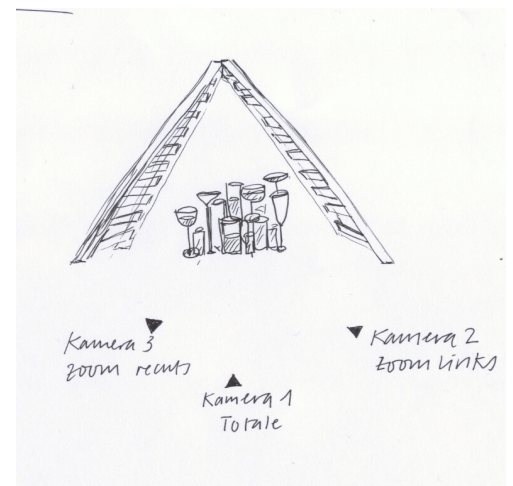 Kamera 3
zoom rechts
Kamera 2
zoom links
Kamera 1
Totale